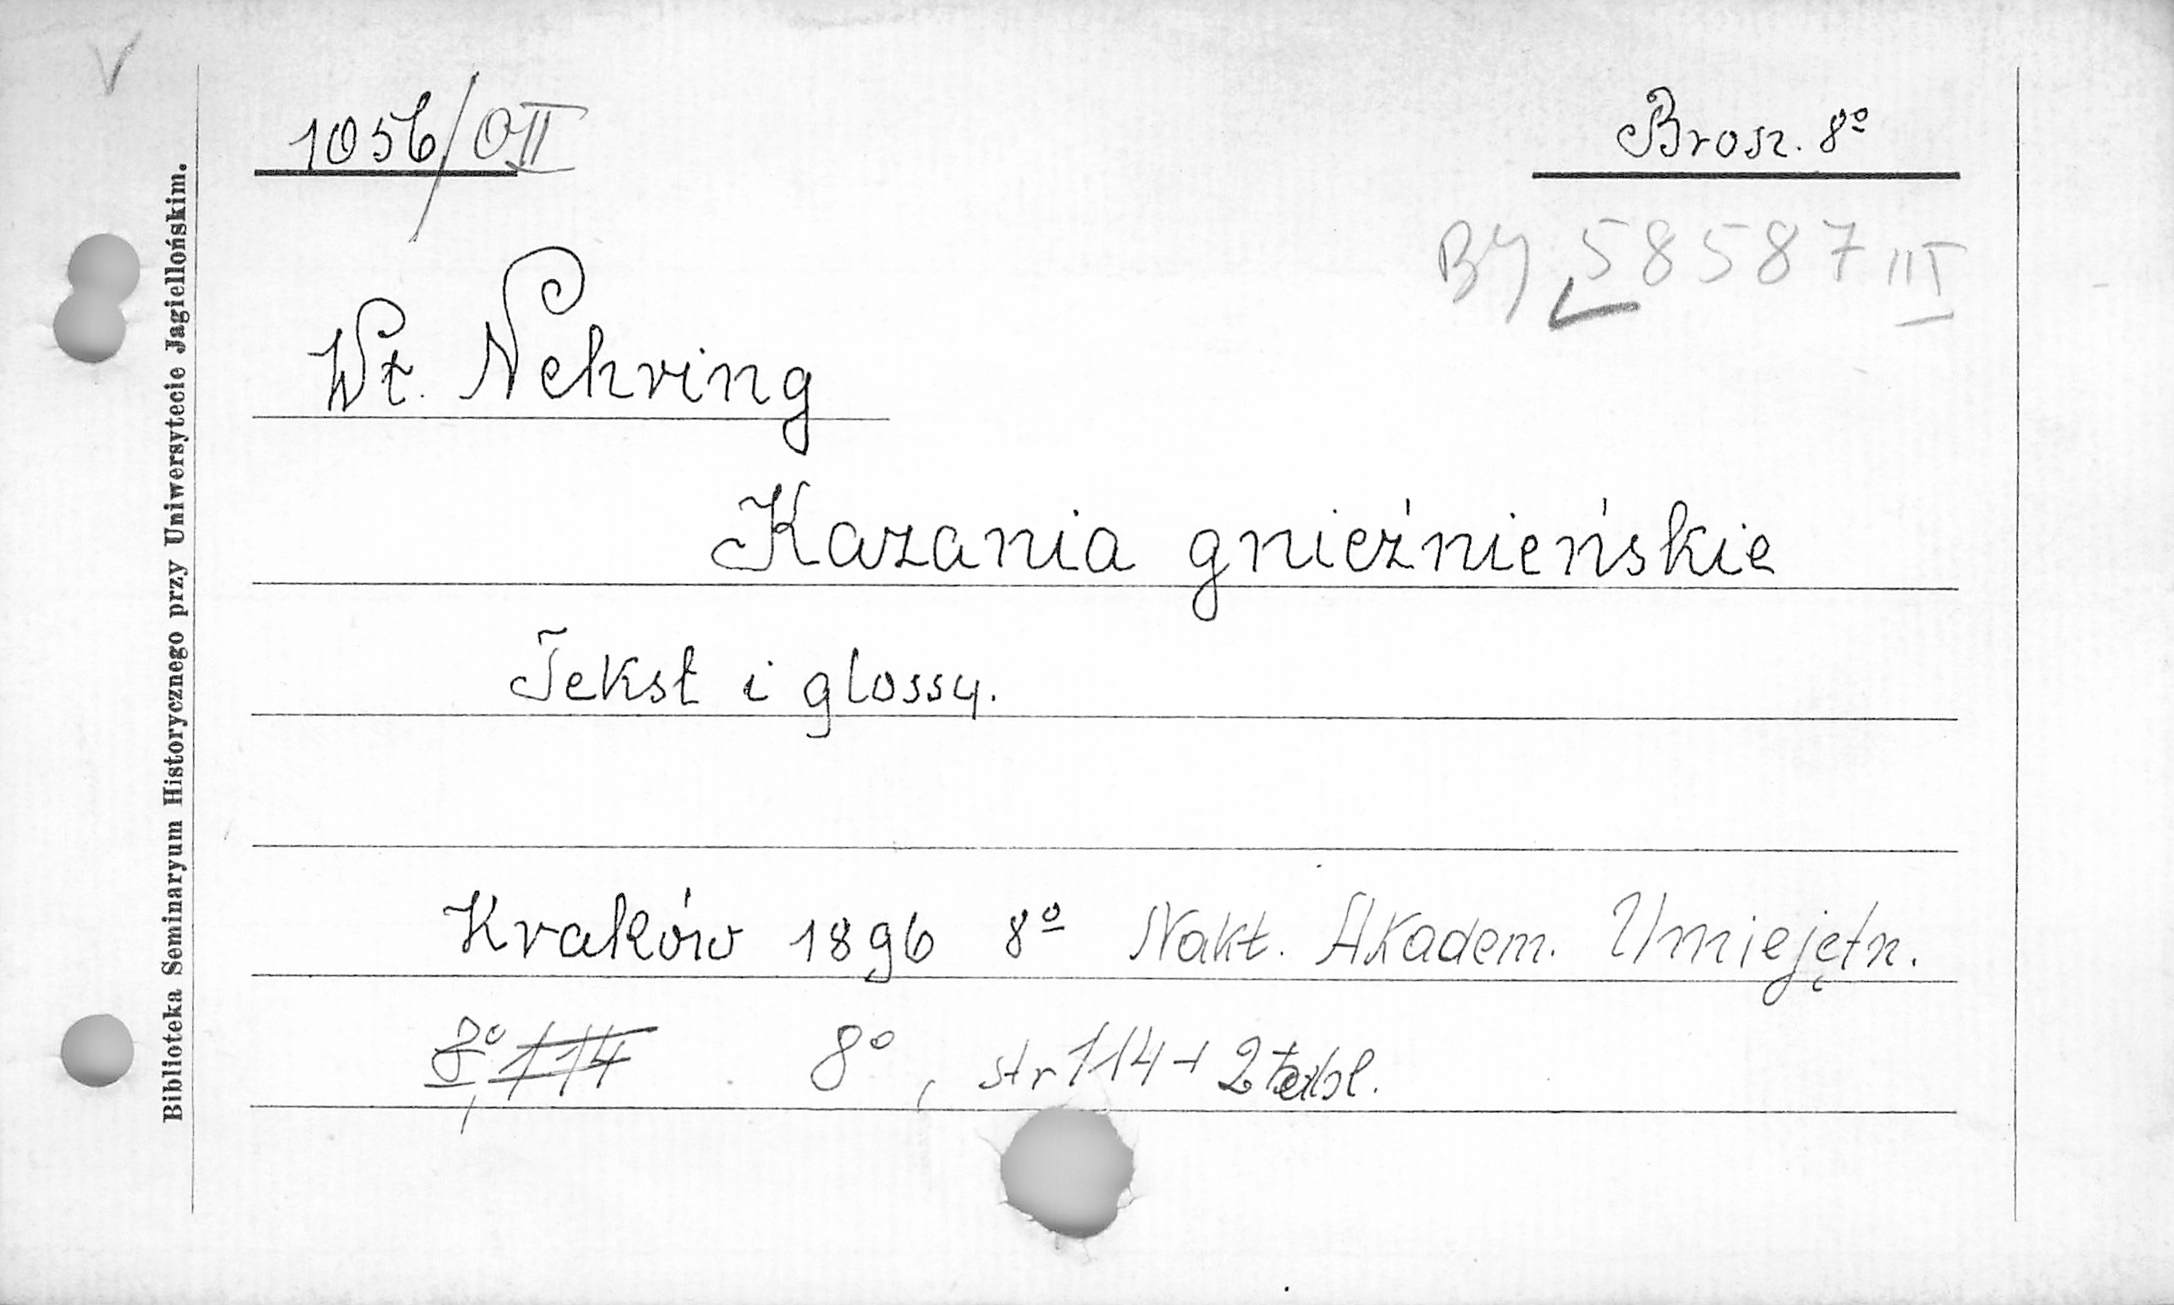 1056/OII
Brosz. 8º
BJ 58587 III
Wł. Nehring
Kazania gnieźnieńskie
Tekst i glossy.
Kraków 1896 8º Nakł. Akadem. Umiejętn.
8º, 114 8º, str 114 + 2 tabl.
Biblioteka Seminaryum Historycznego przy Uniwersytecie Jagiellońskim.